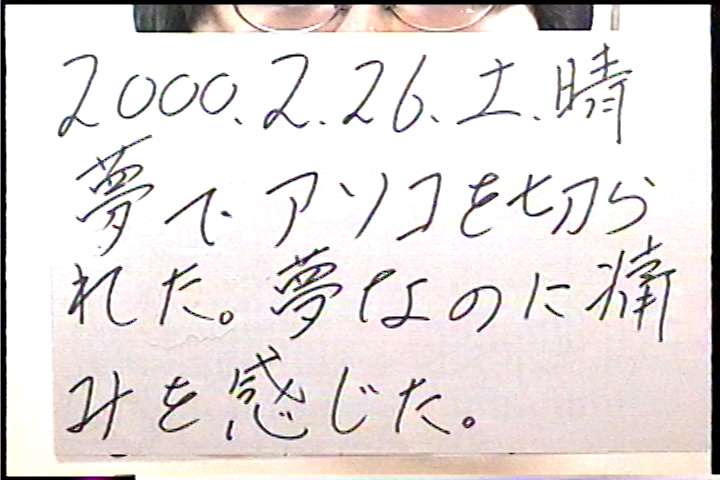 2000.2.26.土.晴
夢で アソコを切ら
れた。夢なのに痛
みを感じた。